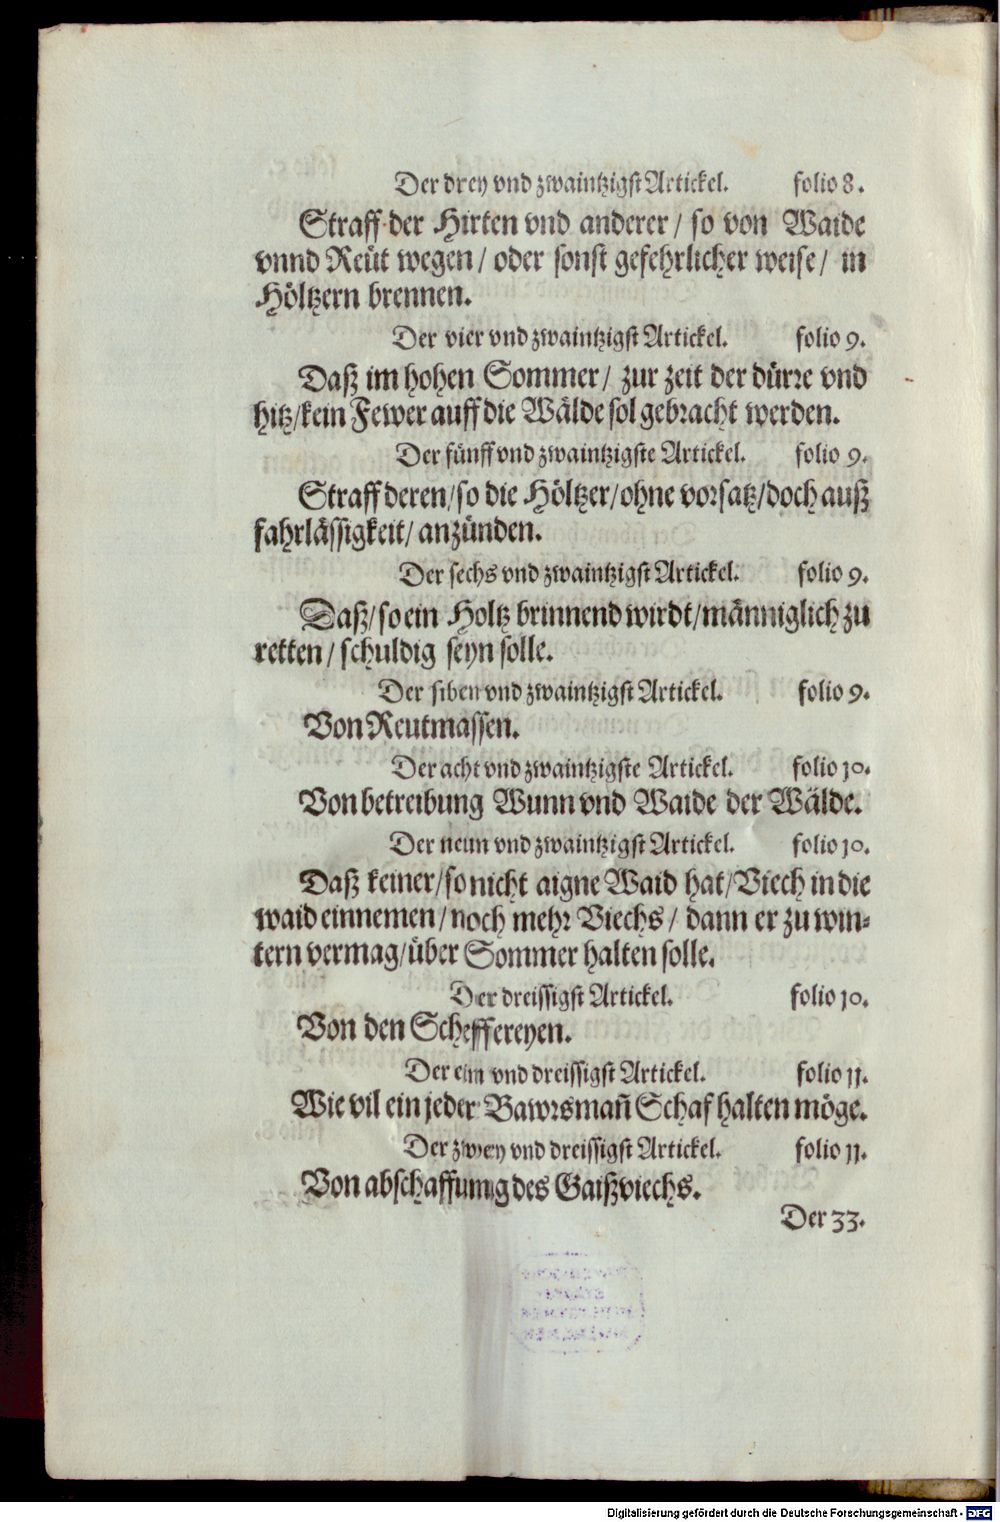 Der drey vnd zwaintzigst Artickel. folio 8.
Straff der Hirten vnd anderer / so von Waide
vnnd Reüt wegen / oder sonst gefehrlicher weise / in
Höltzern brennen.
Der vier vnd zwaintzigst Artickel. folio 9.
Daß im hohen Sommer / zur zeit der dürre vnd
hitz / kein Fewer auff die Wälde sol gebracht werden.
Der fünff vnd zwaintzigste Artickel. folio 9.
Straff deren / so die Höltzer / ohne vorsatz / doch auß
fahrlässigkeit / anzünden.
Der sechs vnd zwaintzigst Artickel. folio 9.
Daß / so ein Holtz brinnend wirdt / männiglich zu
retten / schuldig seyn solle.
Der siben vnd zwaintzigst Artickel. folio 9.
Von Reutmassen.
Der acht vnd zwaintzigste Artickel. folio 10.
Von betreibung Wunn vnd Waide der Wälde.
Der neun vnd zwaintzigst Artickel. folio 10.
Daß keiner / so nicht aigne Waid hat / Viech in die
waid einnemen / noch mehr Viechs / dann er zu win-
tern vermag / über Sommer halten solle.
Der dreissigst Artickel. folio 10.
Von den Scheffereyen.
Der ein vnd dreissigst Artickel. folio 11.
Wie vil ein jeder Bawrsmañ Schaf halten möge.
Der zwey vnd dreissigst Artickel. folio 11.
Von abschaffung des Gaißviechs.
Der 33.
Digitalisierung gefördert durch die Deutsche Forschungsgemeinschaft - DFG